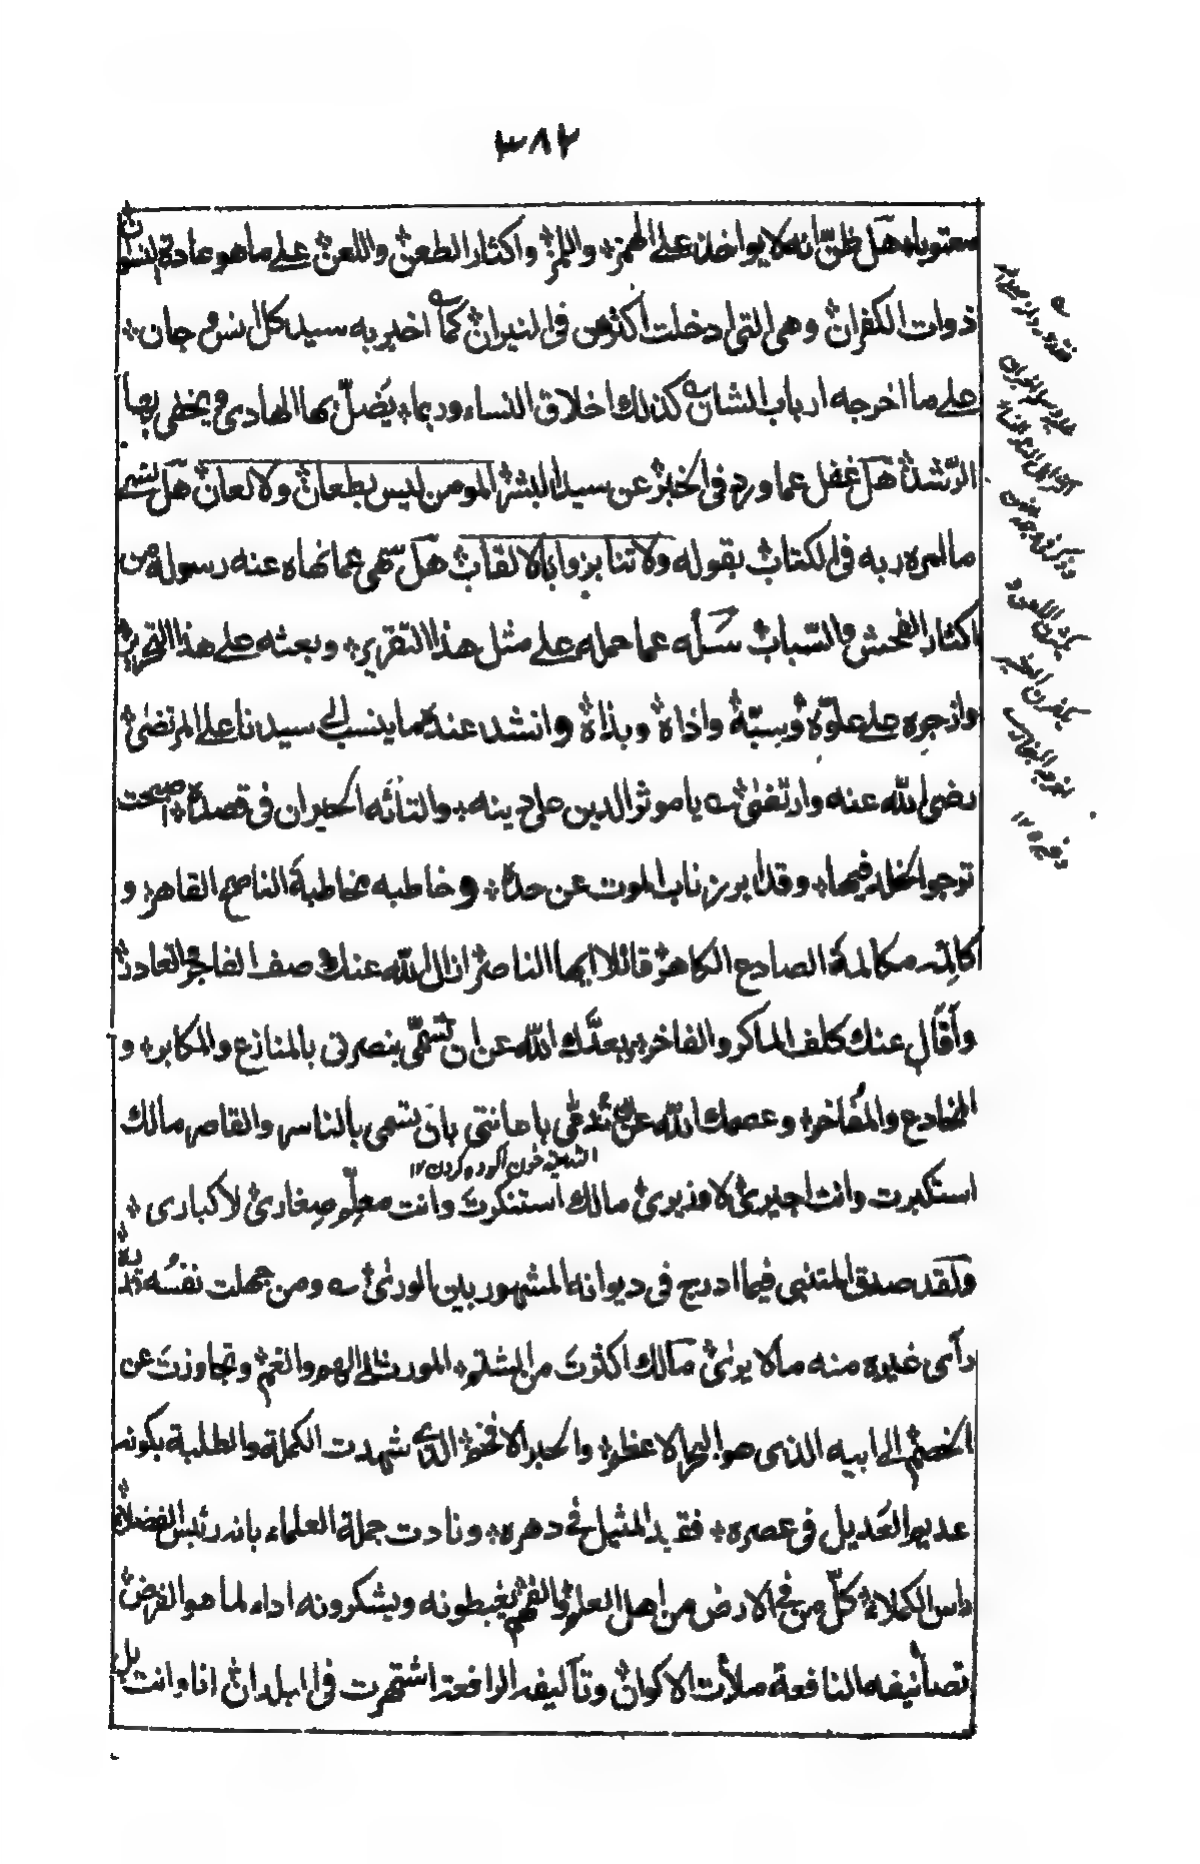 ٣٨٢
معتوباه هَل ظنّ انه لا يواخذ على الهمز؞ واللمز؞ واكثار الطعن؞ واللعن؞ على ما هو عادة النسوان؞
ذوات الكفران؞ وهى التى ادخلت اكثرهن فى النيران؞ كما اخبر به سيد كل انس وجان؞
على ما اخرجه ارباب الشان كذلك اخلاق النساء وربما؞ يَضلّ بها الهادى ويخفى بها
الرّشد؞ هَل غفل عما ورد فى الخبر؞ عن سيد البشر؞ المومن ليس بطعان؞ ولا لعان؞ هَل نسى
ما امره ربه فى الكتاب؞ بقوله ولا تنابزوا بالالقاب؞ هَل سهى عما نهاه عنه رسوله من
اكثار الفحش والسّباب؞ سَله عما حمله على مثل هذا التقرير؞ وبعثه على هذا التحرير؞
وازجره على علوّه؞ وسبّه؞ واذاه؞ وبذاه؞ وانشد عنده ما ينسب الى سيدنا على المرتضىٰ؞
رضى الله عنه وارتضىٰ؞ يا موثر الدين على دينه؞ والتائه الحيران فى قصده؞ اصبحت
ترجو الخلد فيها؞ وقد ابرز ناب الموت عن حده؞ وخاطبه مخاطبة الناصح القاهر؞ و
كالمه مكالمة الصادع الكاهر؞ قائلا ايها الناصر؞ ازال الله عنك وصف الفاجر والغادر؞
وأقال عنك كلف الماكر والفاخر؞ بعدّك الله عن ان تسمّى بنصرتى بالمنازع والمكابر؞ و
المخادع والمُفاخر؞ وعصمك الله عن ان تُدعٰى باهانتى بان تسمى بالناسر والقاصر مالك
استكبرت وانت اجيرى؞ لا وزيرى؞ مالك استنكرتَ وانت معلّم صِغارى؞ لا كبارى؞
ولقد صدق المتنبى فيما ادرج فى ديوانه المشهور بين الورىٰ؞ ومن جهلت نفسُه قدره؞
رأى غيره منه ما لا يرىٰ؞ مالك اكثرتَ من الشتم؞ المورث الى الهم والغم؞ وتجاوزتَ عن
الخصم؞ الى ابيه الذى هو البحر الاعظم؞ والحبر الافخم؞ الذى شهدت الكملة والطلبة بكونه
عديم العَديل فى عصره؞ فقيد المثيل فى دهره؞ ونادت جملة العلماء بانه رئيس الفضلاء؞
راس الكملاء؞ كلّ من فى الارض من اهل العلم؞ والفهم؞ يغبطونه ويشكرونه اداء لما هو الفرض؞
تصانيفه النافعة ملأت الاكوان؞ وتآليفه الرافعة اشتهرت فى البلدان؞ انا وانت بل
التدمية خون آلوده كردن ١٢